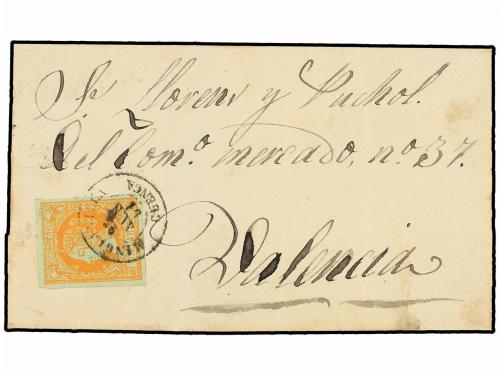 Sr. Llorens y Puchol.
Del Comº. mercado, nº 37.
Valencia
CUENCA